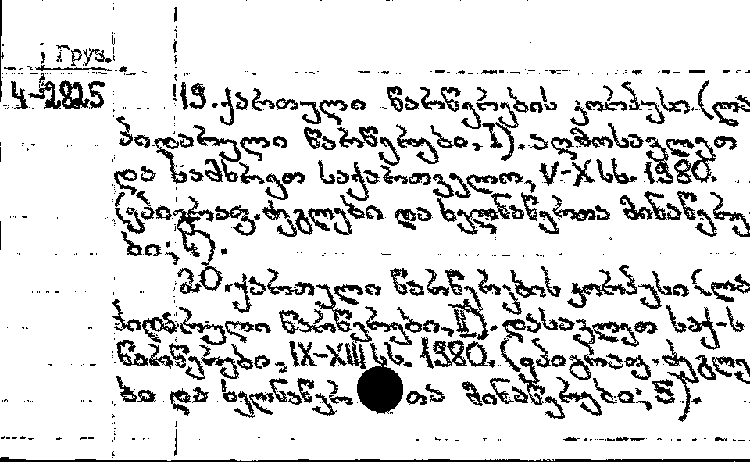 Груз.
4-2825 19. ქართული წარწერების კორპუსი (ლა
პიდარული წარწერები, I). აღმოსავლეთ
და სამხრეთ საქართველო, V-X სს. 1980.
(ეპიგრაფ. ძეგლები და ხელნაწერთა მინაწერე
ბი; 4).
20. ქართული წარწერების კორპუსი (ლა
პიდარული წარწერები, II). დასავლეთ საქ-ს
წარწერები, IX-XIII სს. 1980. (ეპიგრაფ. ძეგლე
ბი და ხელნაწერთა მინაწერები; 5).